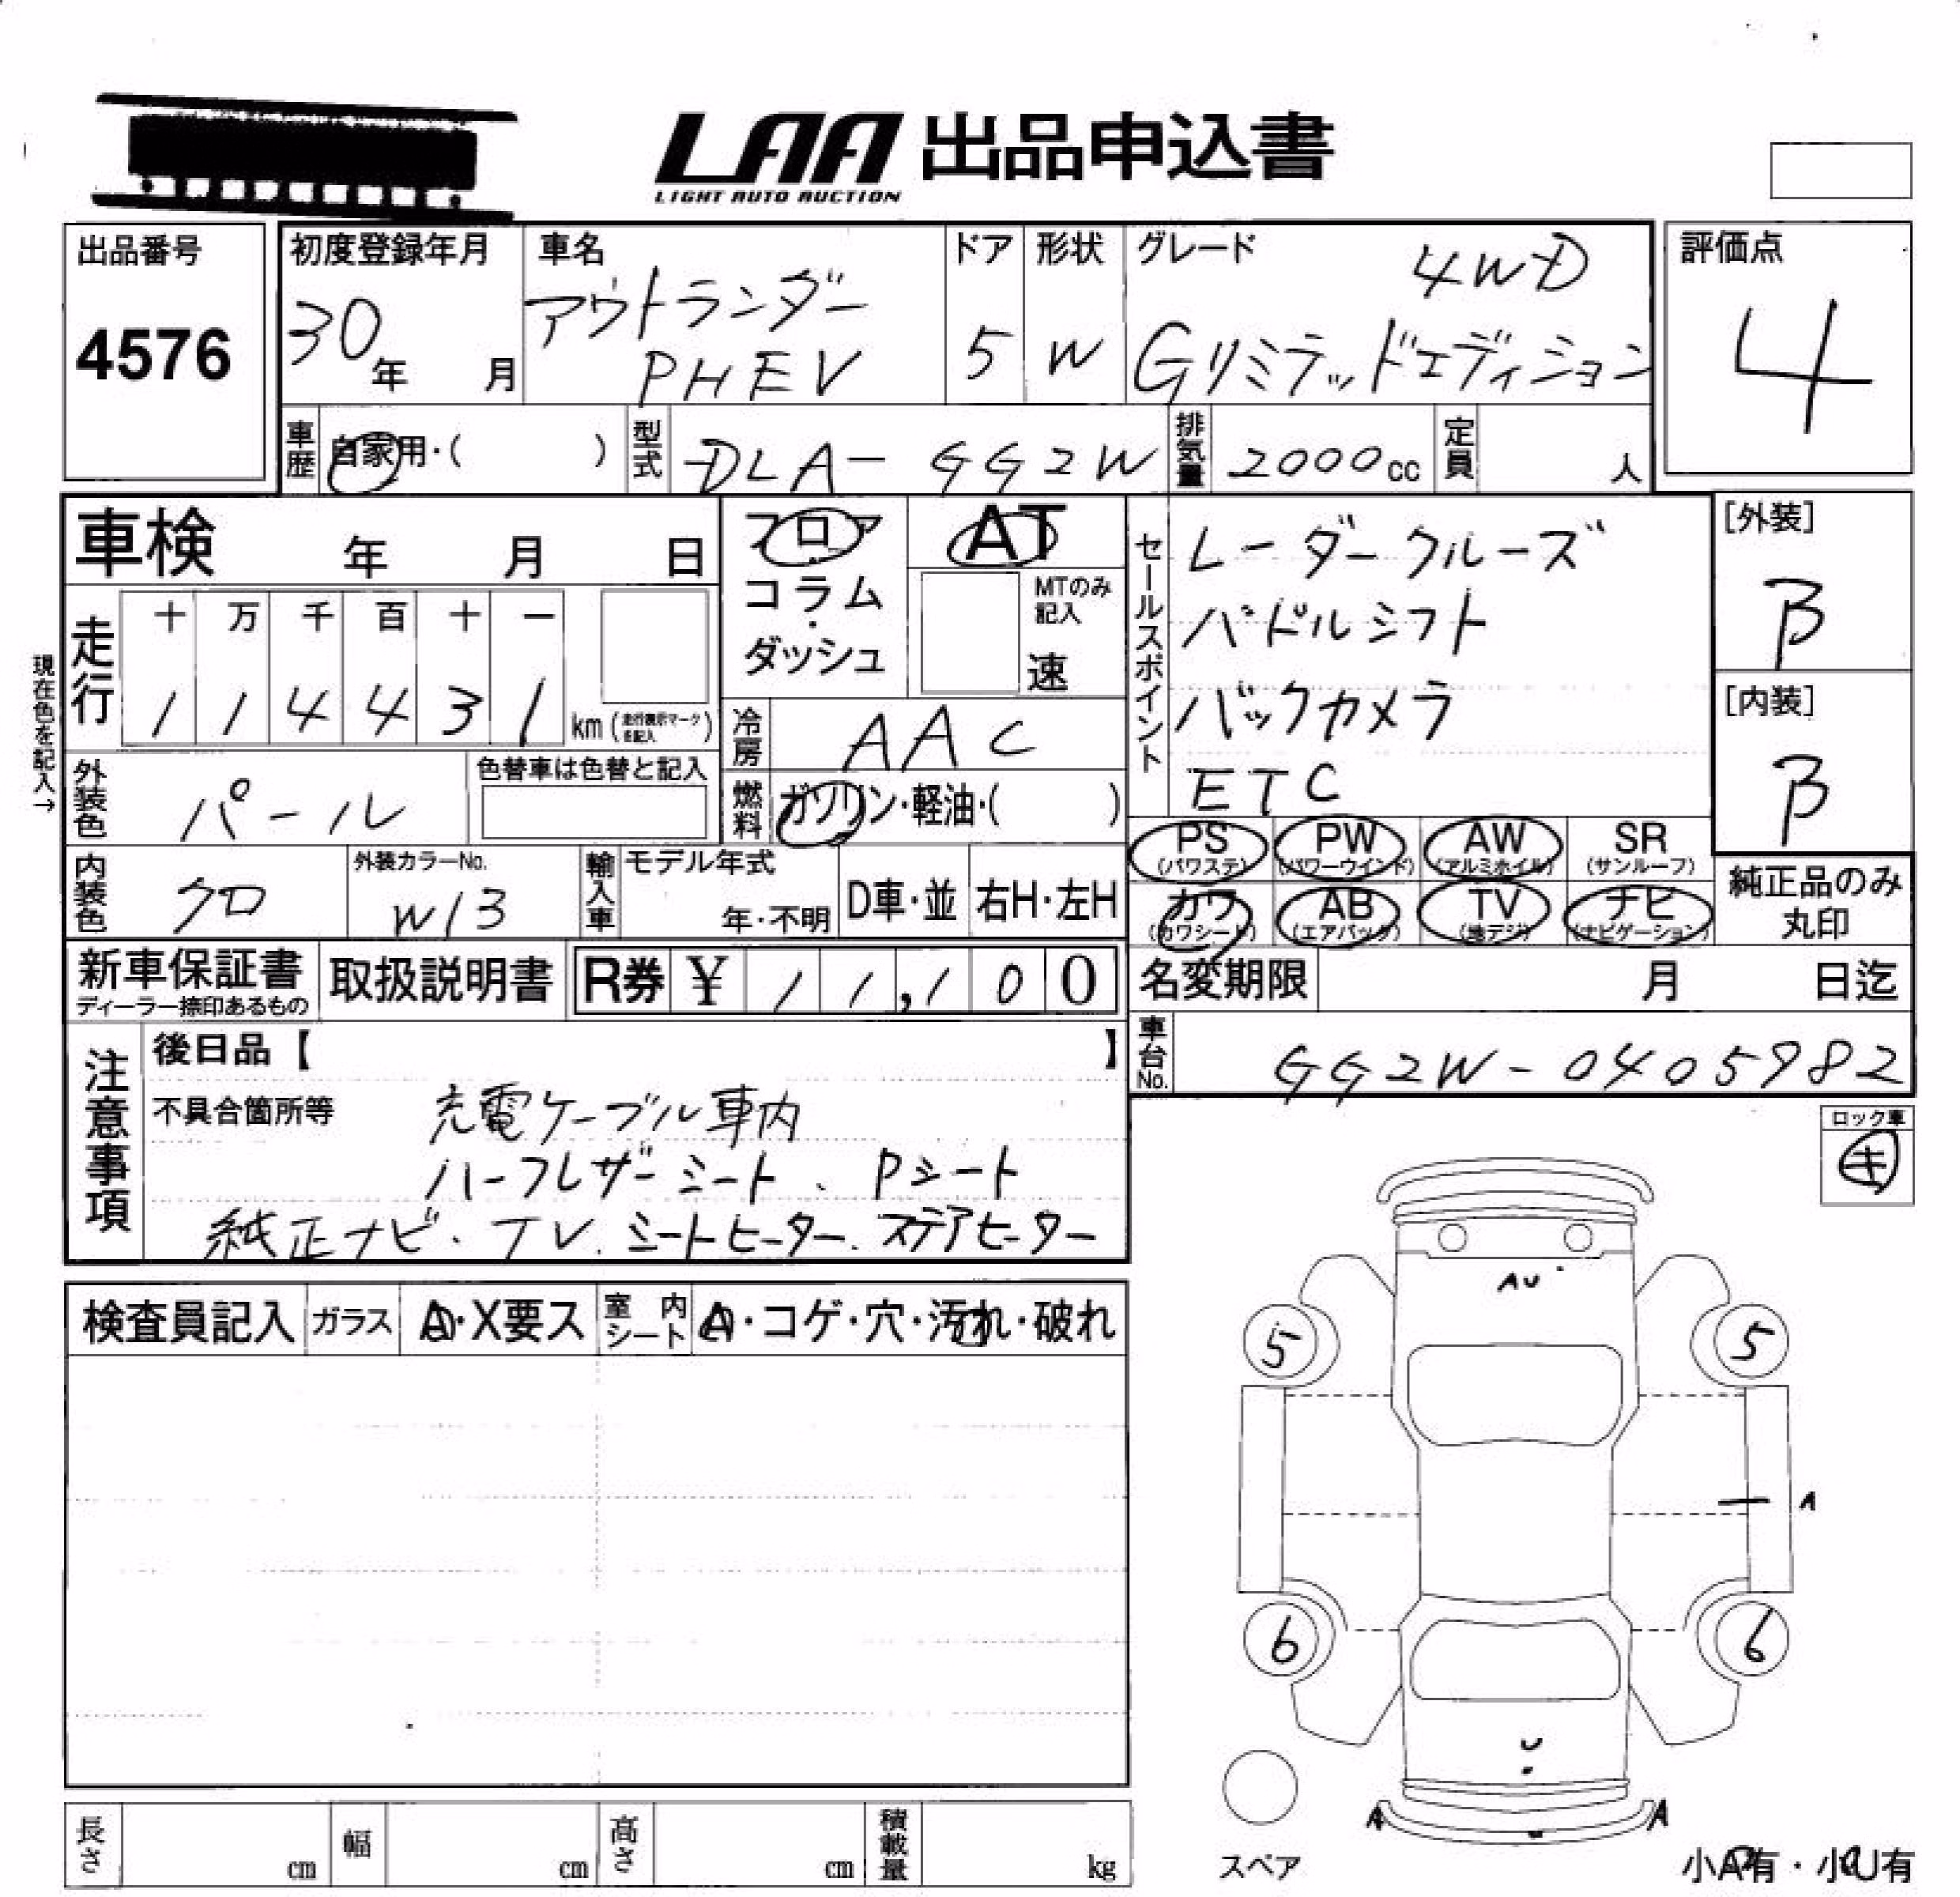 LAA 出品申込書
LIGHT AUTO AUCTION
出品番号
4576
初度登録年月
30年 月
車名
アウトランダー
PHEV
ドア
5
形状
W
グレード
4WD
Gリミテッドエディション
評価点
4
車歴 自家用・( )
型式 DLA-GG2W
排気量 2000cc
定員 人
車検 年 月 日
フロア
コラム
・
ダッシュ
AT
MTのみ
記入
速
セールスポイント
レーダークルーズ
パドルシフト
バックカメラ
ETC
[外装]
B
[内装]
B
現在色を記入→
走行
十 万 千 百 十 一
1 1 4 4 3 1 km (走行表示マークを記入)
冷房 AAC
外装色 パール
色替車は色替と記入
燃料 ガソリン・軽油・( )
PS (パワステ)
PW (パワーウインド)
AW (アルミホイル)
SR (サンルーフ)
カワ (カワシート)
AB (エアバック)
TV (地デジ)
ナビ (ナビゲーション)
純正品のみ
丸印
内装色 クロ
外装カラーNo.
W13
輸入車
モデル年式
年・不明
D車・並
右H・左H
新車保証書
ディーラー捺印あるもの
取扱説明書
R券 ¥ 11,100
名変期限 月 日迄
車台No. GG2W-0405982
注意事項
後日品【 】
不具合箇所等 充電ケーブル車内
ハーフレザーシート、Pシート
純正ナビ・TV、シートヒーター、ステアヒーター
ロック車
キ
検査員記入 ガラス A・X要ス 室内シート A・コゲ・穴・汚れ・破れ
AU
5 5
A
6 6
U
A A
スペア
小A有・小U有
長さ cm 幅 cm 高さ cm 積載量 kg